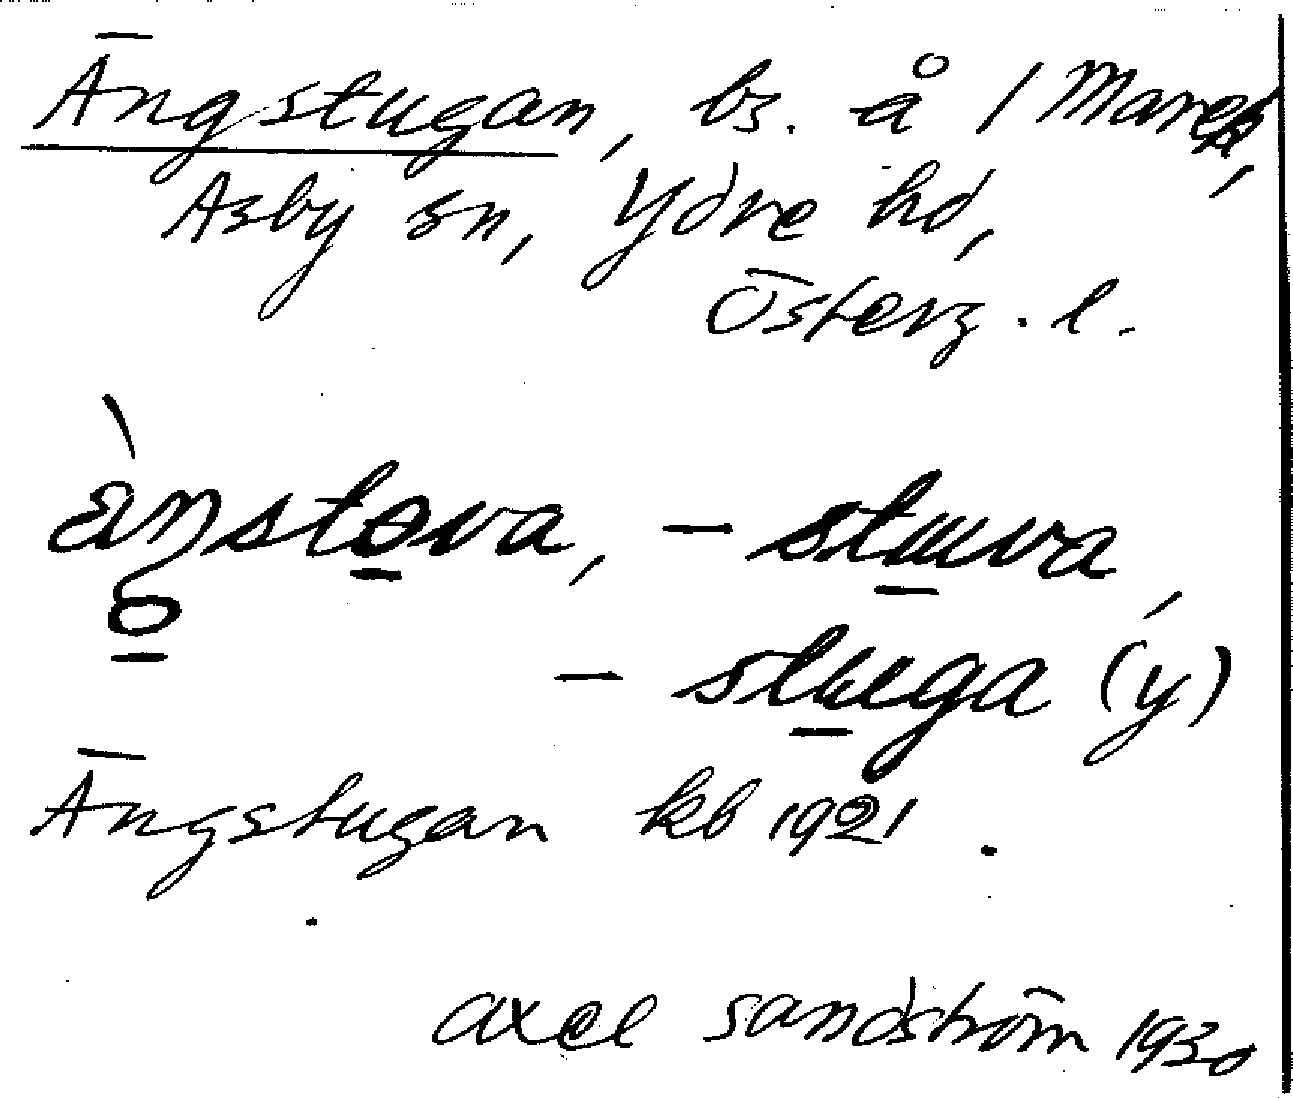 Ängstugan, bs. å 1 Marek,
Asby sn, Ydre hd,
Österg. l.
ὰŋstova, - stuva,
- stuga (y)
Ängstugan kb 1921
axel sandström 1930